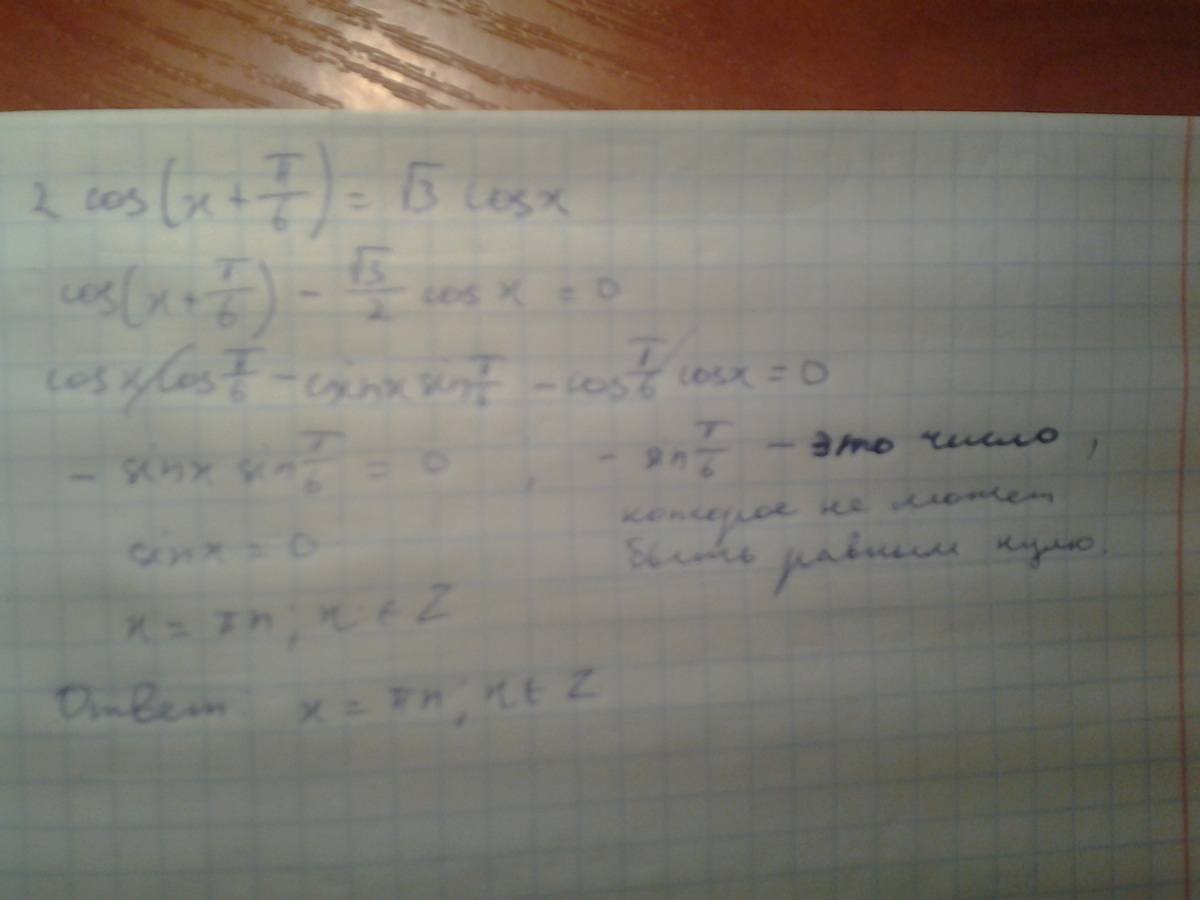 2 cos(x + π/6) = √3 cos x
cos(x + π/6) - √3/2 cos x = 0
cos x cos π/6 - sin x sin π/6 - cos π/6 cos x = 0
- sin x sin π/6 = 0 , - sin π/6 - это число,
которое не может
sin x = 0 быть равным нулю.
x = πn; n ∈ Z
Ответ: x = πn; n ∈ Z